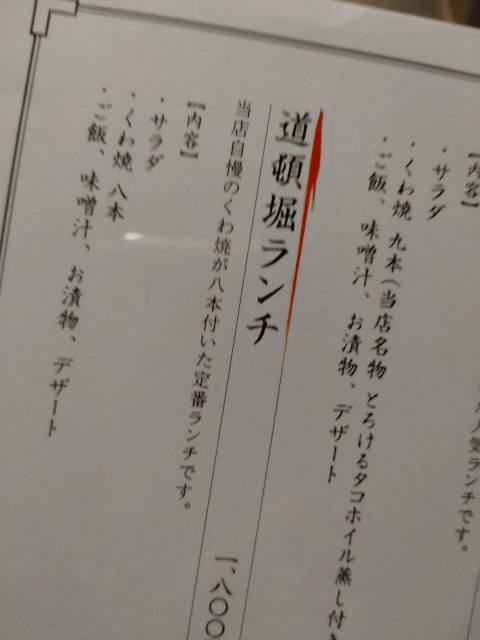 【内容】
・サラダ
・くわ焼 九本(当店名物 とろけるタコホイル蒸し付き
・ご飯、味噌汁、お漬物、デザート
人気ランチです。
道頓堀ランチ
当店自慢のくわ焼が八本付いた定番ランチです。
一、八〇〇
【内容】
・サラダ
・くわ焼 八本
・ご飯、味噌汁、お漬物、デザート